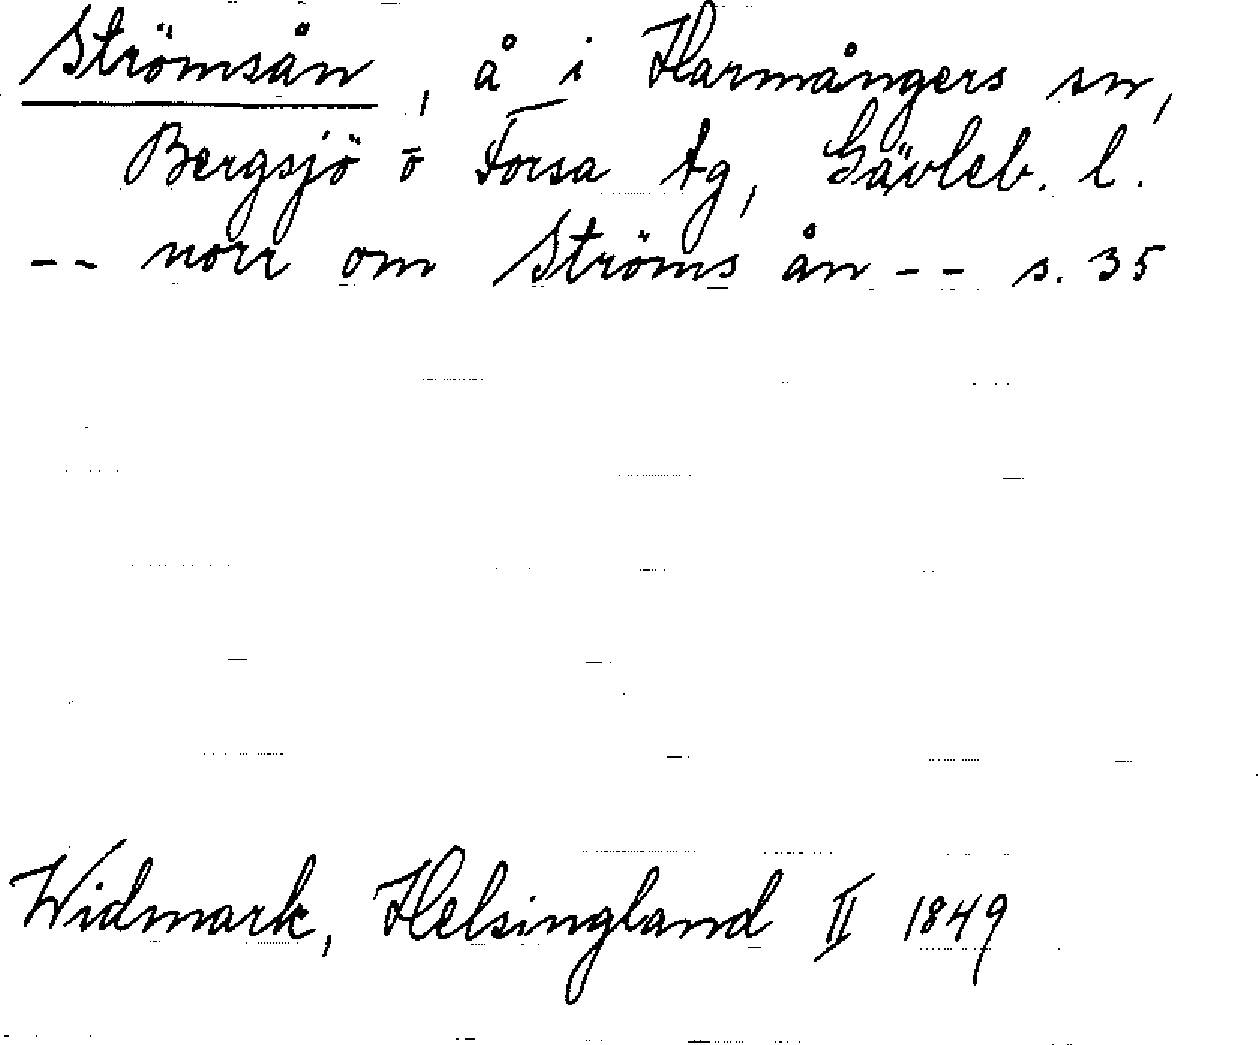 Strömsån, å i Harmångers sn,
Bergsjö o Forsa tg, Gävleb. l.
-- norr om Ströms ån -- s. 35
Widmark, Helsingland II 1849